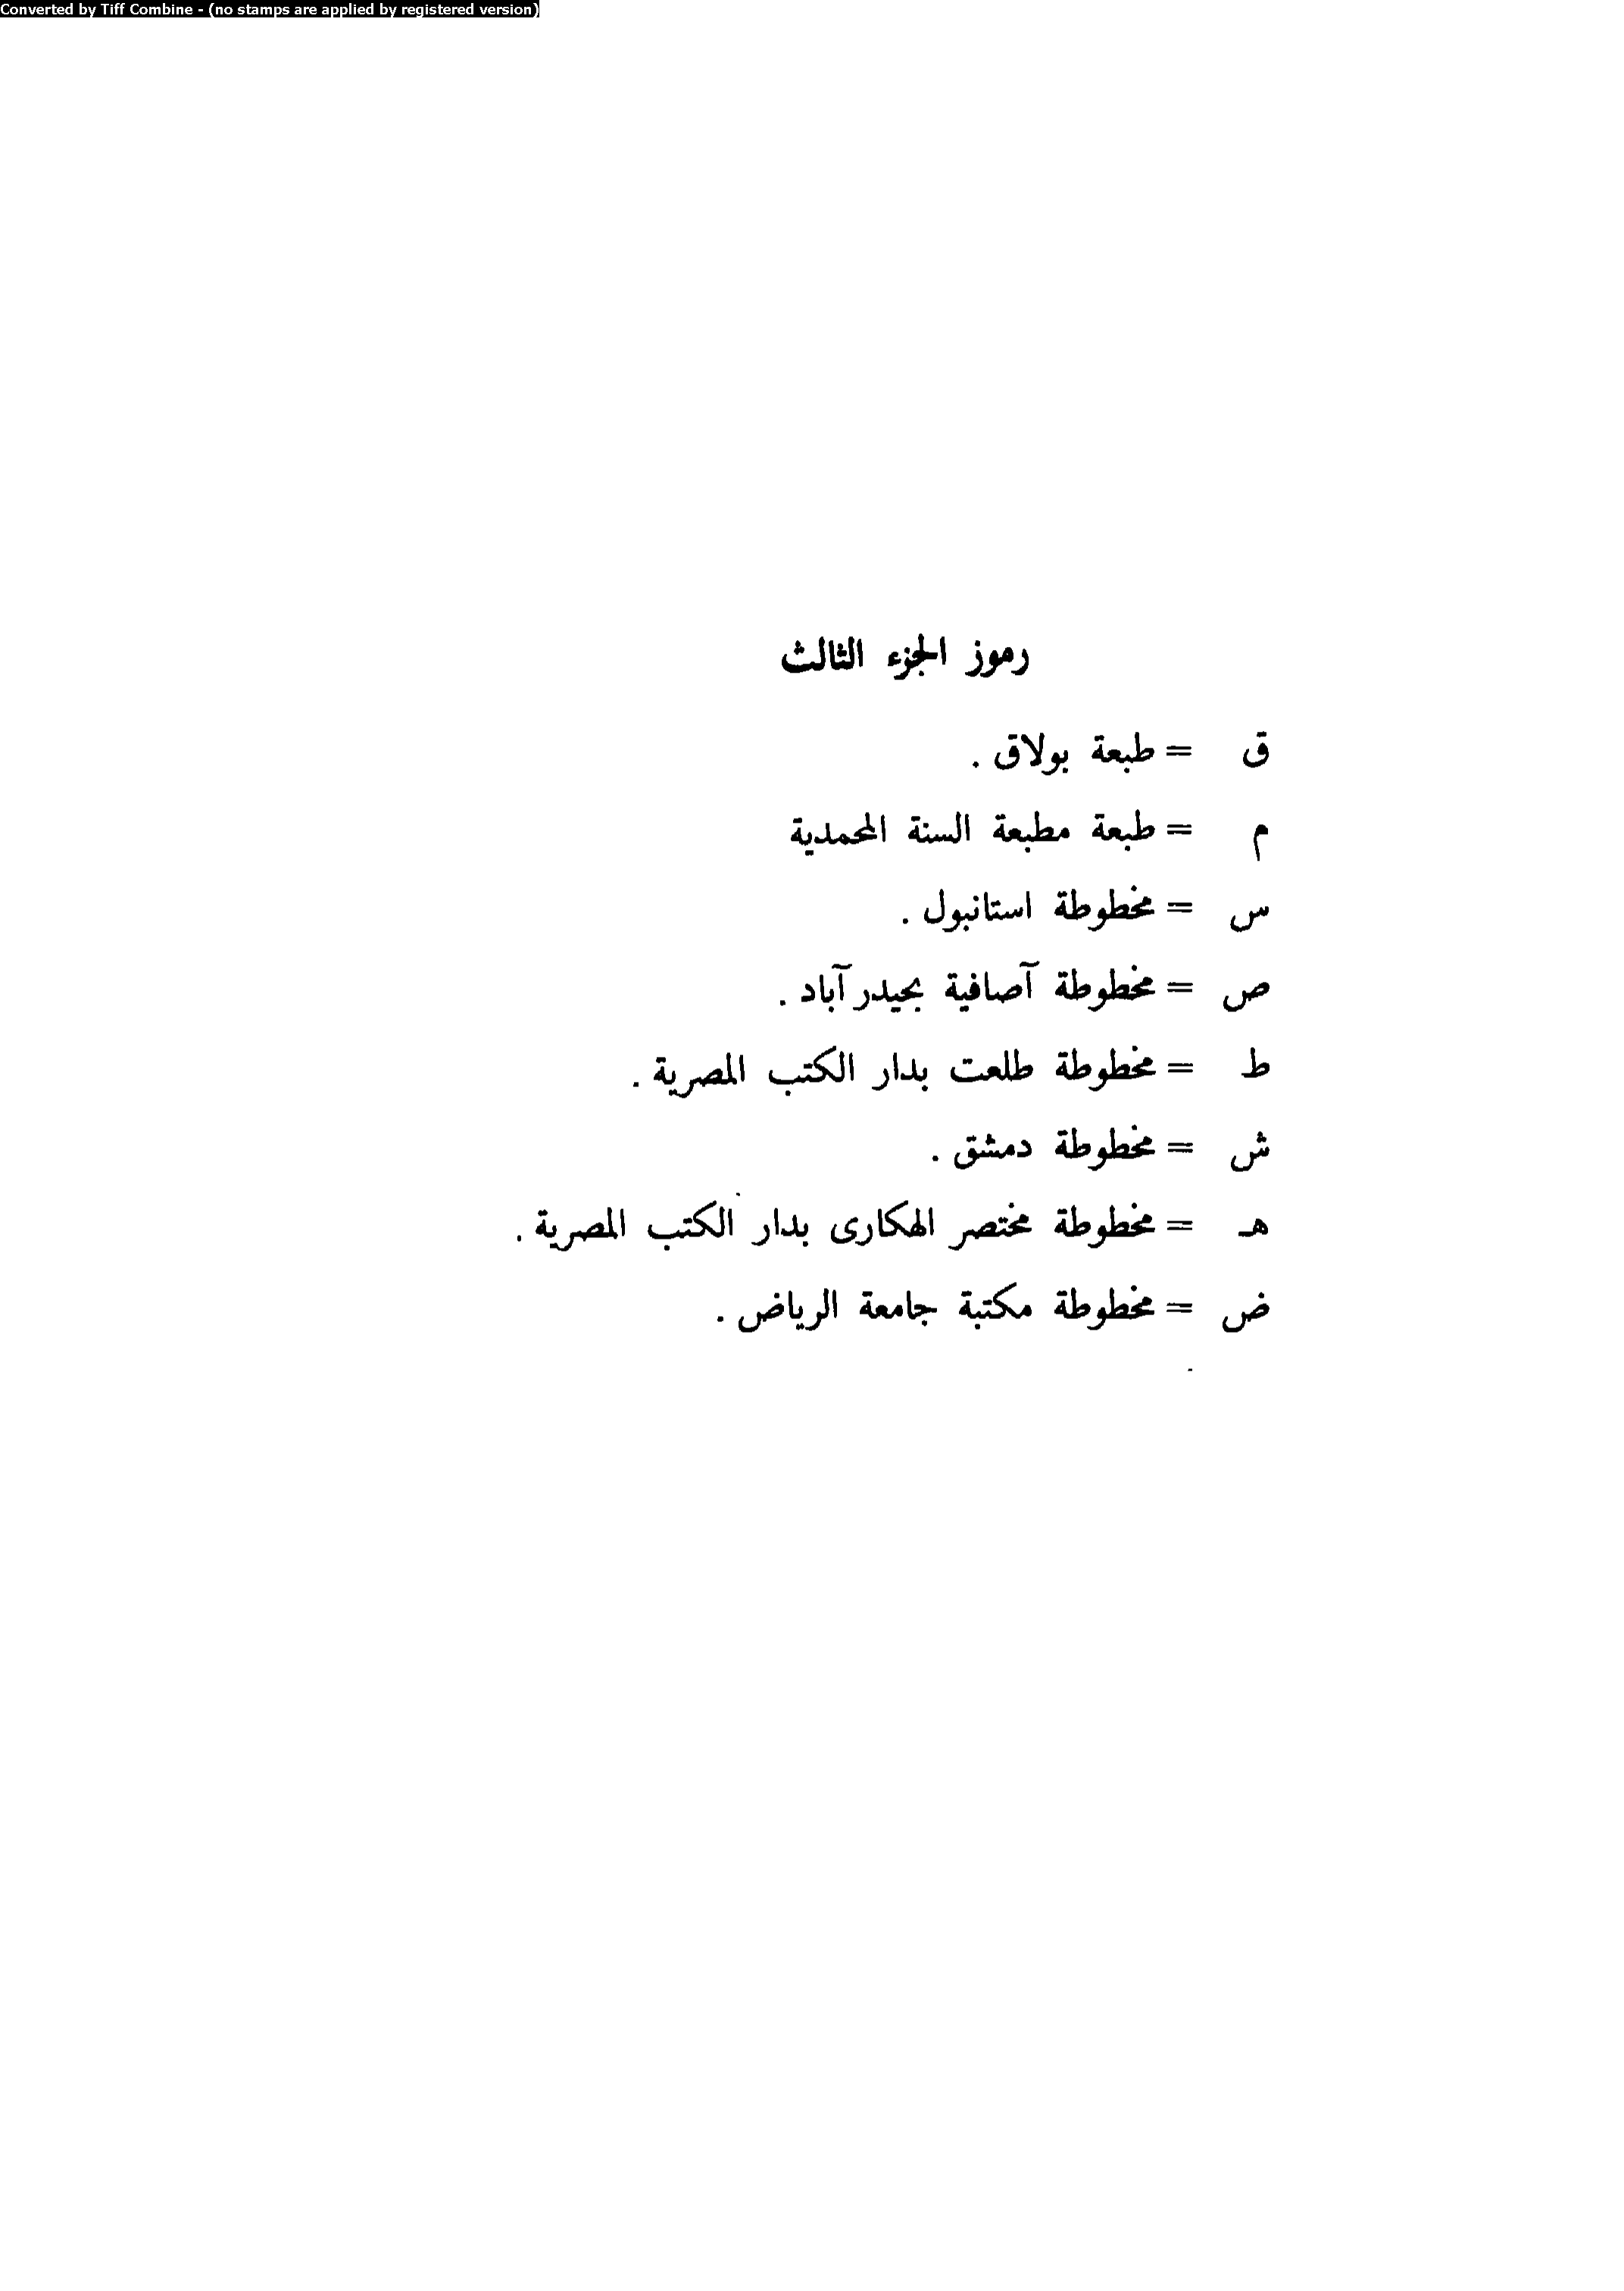 Converted by Tiff Combine - (no stamps are applied by registered version)
رموز الجزء الثالث
ق = طبعة بولاق .
م = طبعة مطبعة السنة المحمدية
س = مخطوطة استانبول .
ص = مخطوطة آصافية بحيدر آباد .
ط = مخطوطة طلعت بدار الكتب المصرية .
ش = مخطوطة دمشق .
هـ = مخطوطة مختصر الهكارى بدار الكتب المصرية .
ض = مخطوطة مكتبة جامعة الرياض .